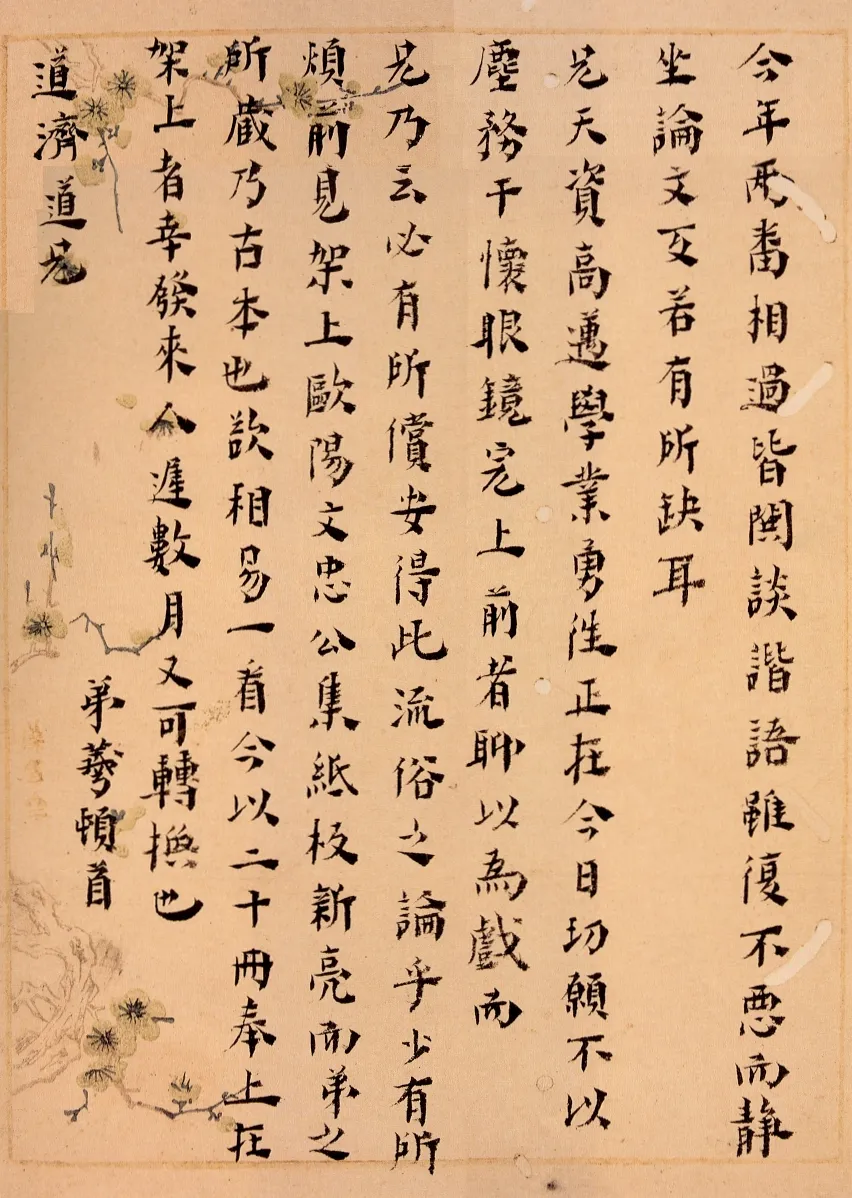 今年兩番相過皆闊談諧語雖復不惡而靜
坐論文互若有所缺耳
兄天資高邁學業勇往正在今日切願不以
塵務干懷眼鏡完上前者聊以為戲而
兄乃云必有所償安得此流俗之論乎少有所
煩前見架上歐陽文忠公集紙板新亮而弟之
所藏乃古本也欲相易一看今以二十冊奉上在
架上者幸發來人遲數月又可轉換也
道濟道兄
弟頓首